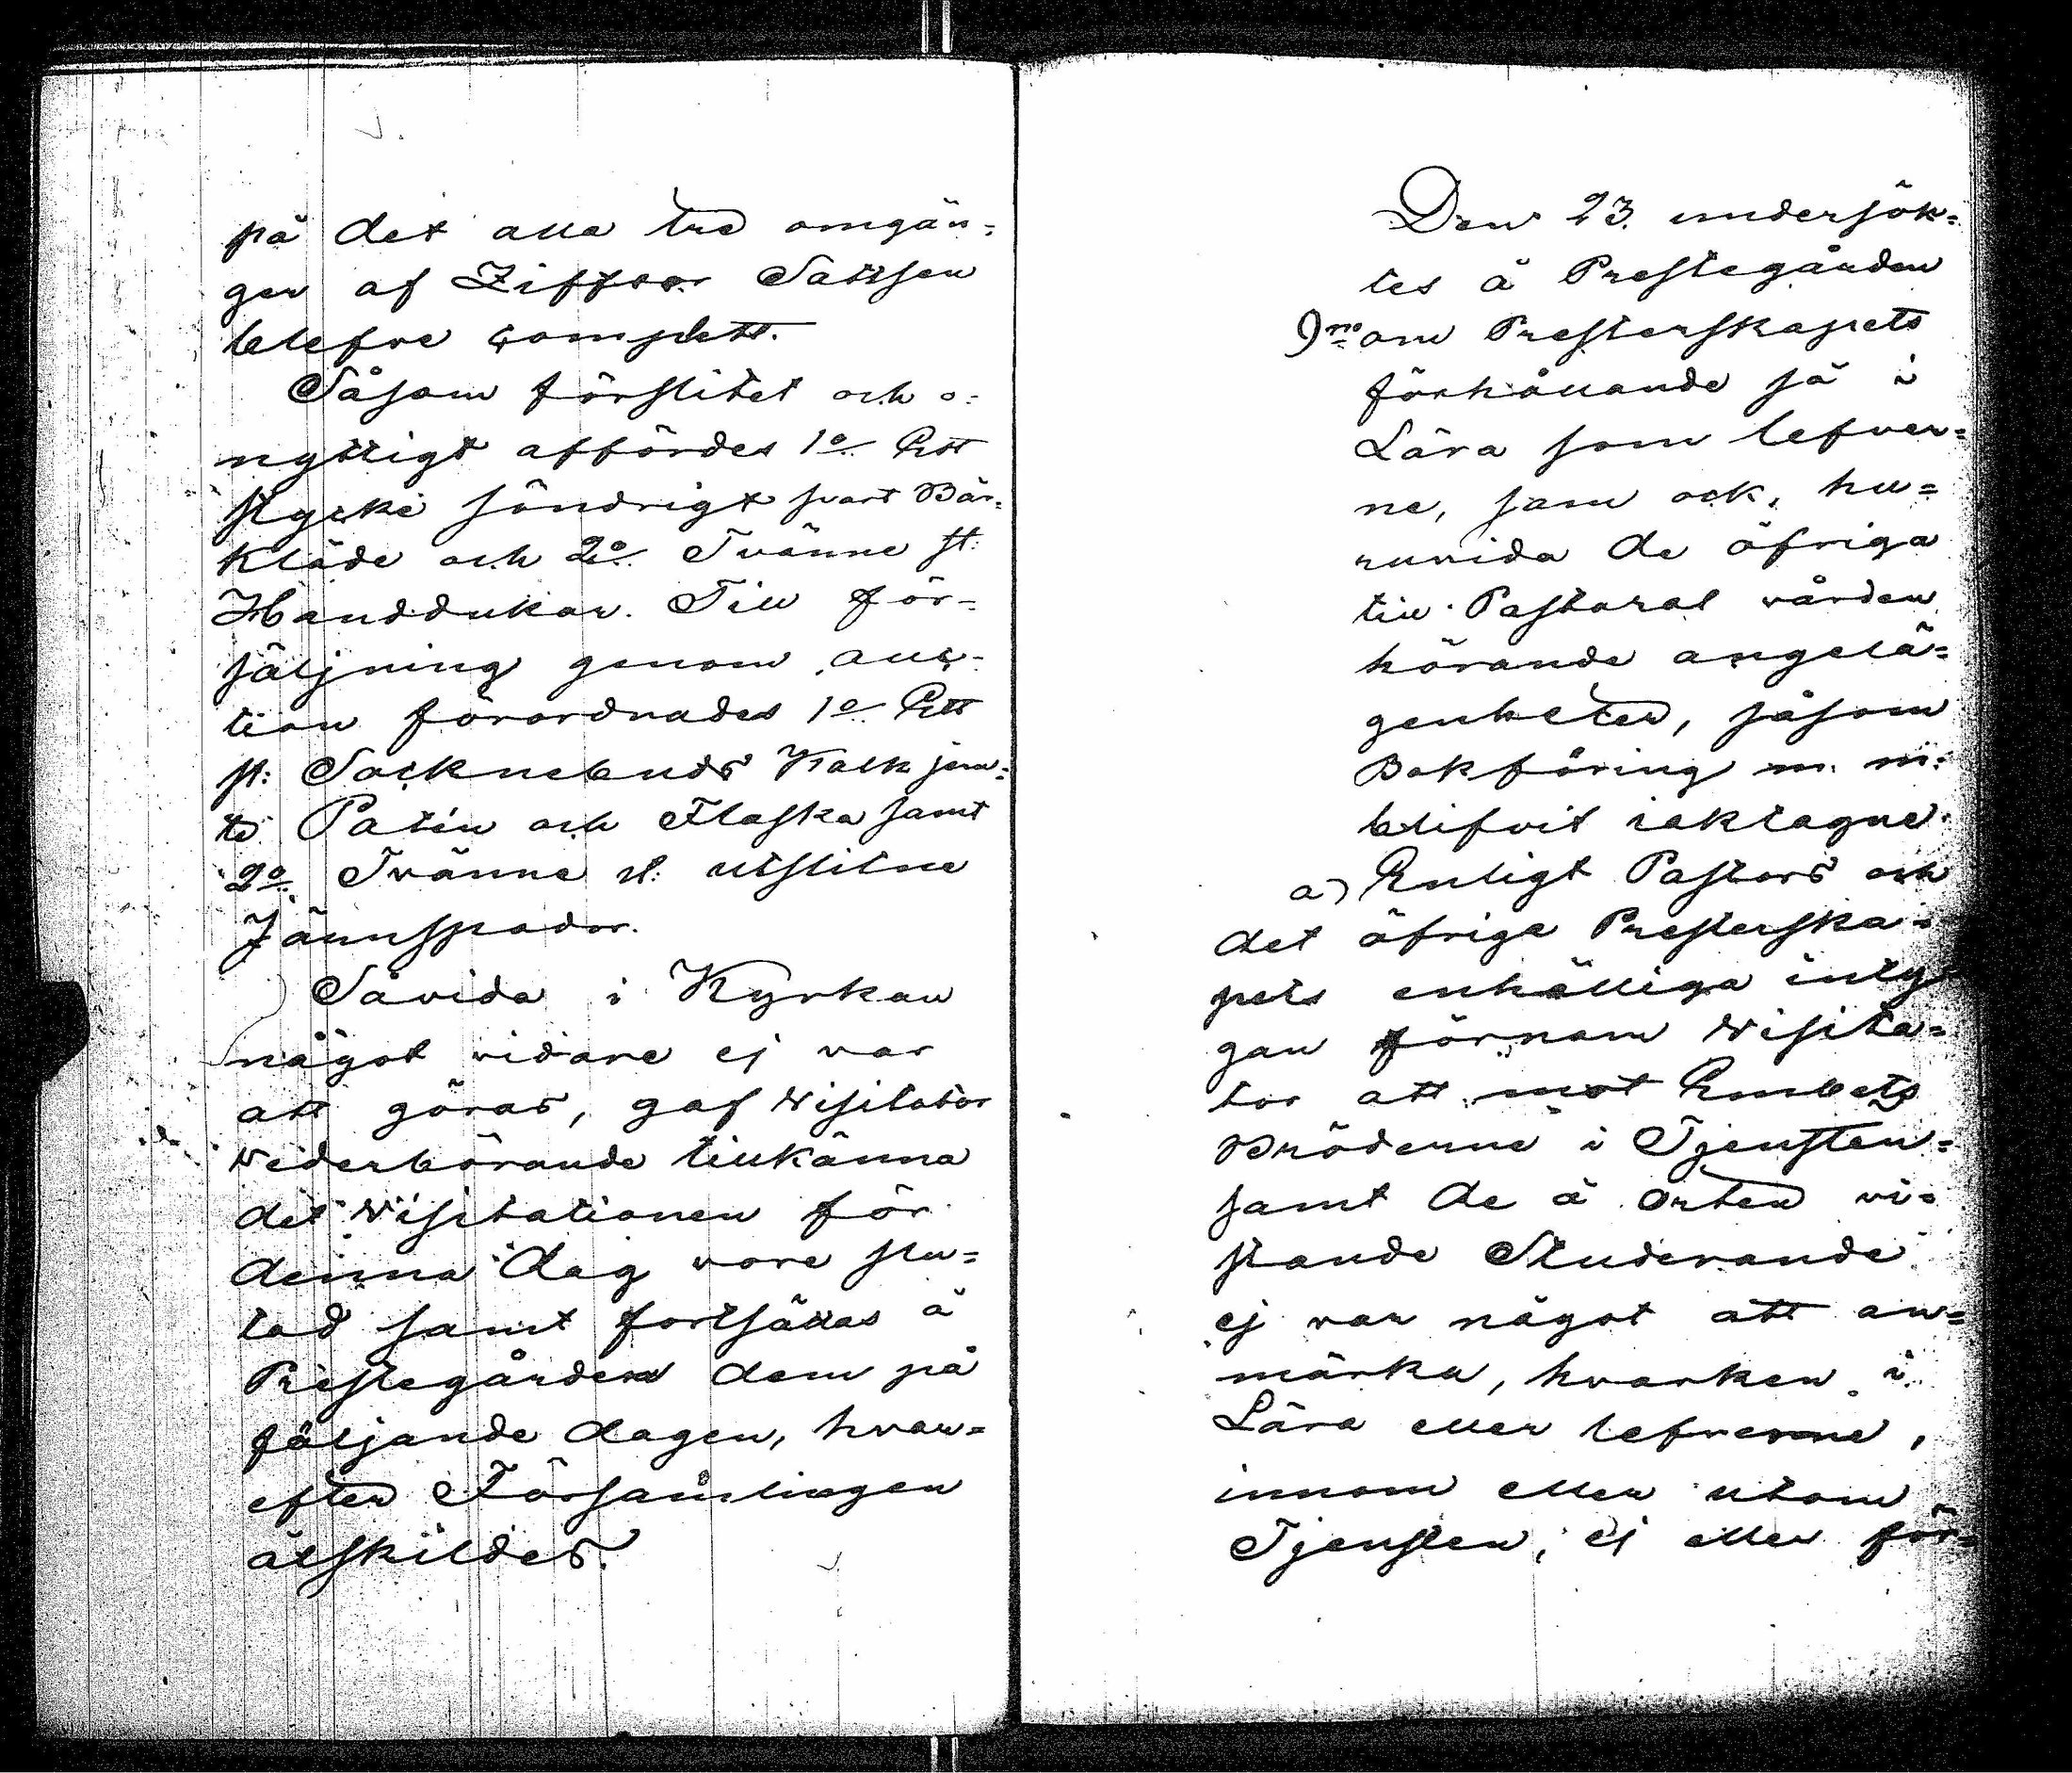 på det alla tre omgån=
gar af Ziffror Sattsen
blefve complett.
Såsom förslitet och o=
nyttigt affördes 1o Ett
stycke söndrigt svart Bår=
kläde och 2o Tvänne st:
Handdukar. Till för=
säljning genom auc=
tion förordnades 1o Ett
st: Socknebuds Kalk jem=
te Patén och Flaska samt
2o Tvänne st: utslitne
Jännspador.
Såvida i Kyrkan
något vidare ej var
att göras, gaf Visitator
Vederbörande tillkänna
det Visitationen för
denna dag vore slu=
tad samt fortsättas å
Prestegården dem på
följande dagen, hvar=
efter Församlingen
åtskildes.
Den 23. undersök=
tes å Prestegården
9no om Presterskapets
förhållande så i
Lära som lefver=
ne, som ock, hu=
ruvida de öfriga
till Pastoral vården
hörande angelä=
genheter, såsom
Bokföring m. m:
blifvit iakttagne.
a) Enligt Pastors och
det öfriga Presterska=
pets enhälliga inty
gan förnam Visita=
tor att mot Embets
Bröderne i Tjensten=
samt de å orten vi=
stande Studerande
ej var något att an=
märka, hvarken i
Lära eller lefverne,
innom eller utom
Tjensten, ej eller för=